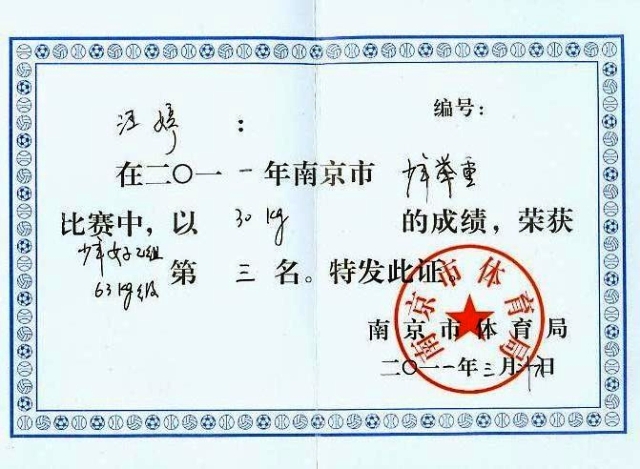 汪婷：
编号：
在二〇一一年南京市 少年举重
比赛中，以 30kg 的成绩，荣获
少年女子乙组
63kg级
第三名。特发此证。
南京市体育局
南京市体育局
二〇一一年三月 日